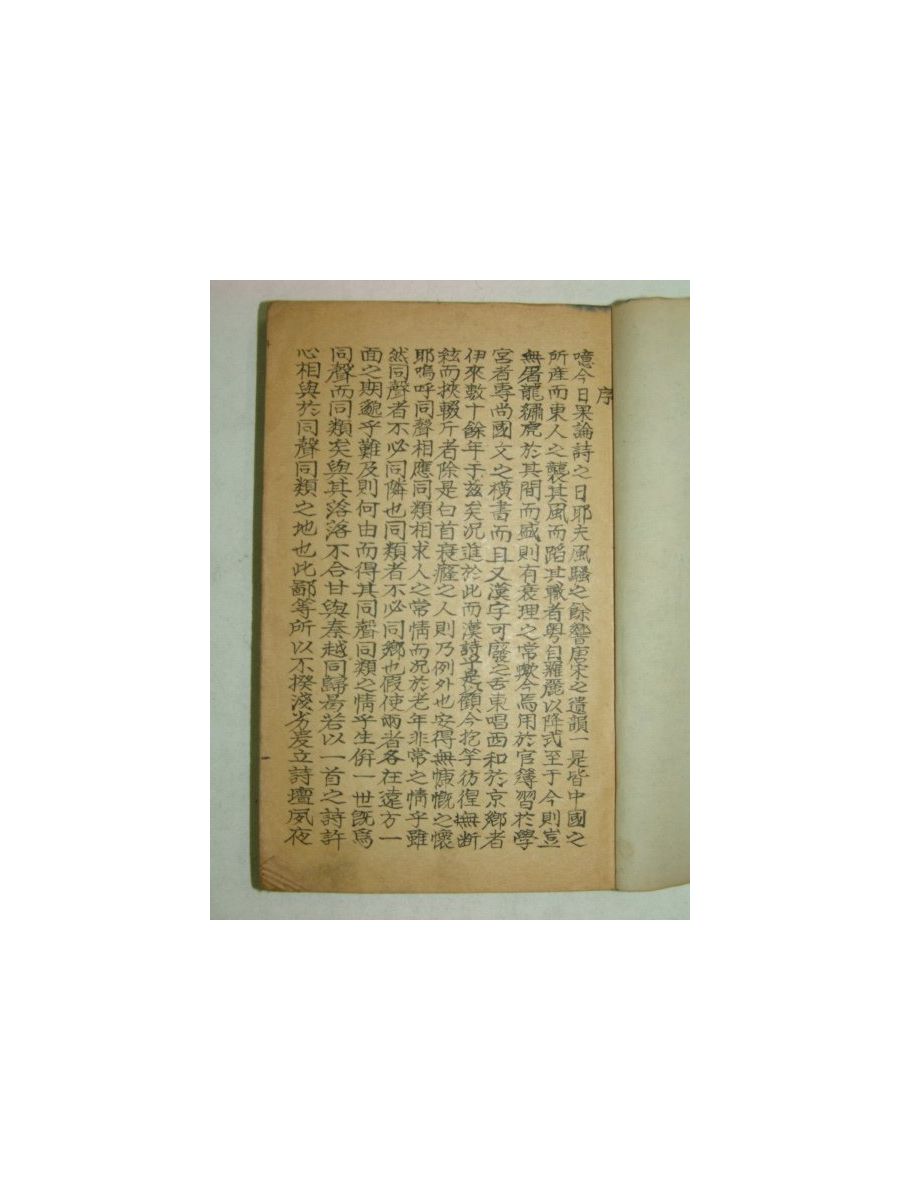 序
噫今日果論詩之日耶夫風騷之餘響唐宋之遺韻一是皆中國之
所産而東人之襲其風而蹈其職者粤自羅麗以降式至于今則豈
無屠龍繡虎於其間而盛則有衰理之常歟今焉用於官簿習於學
宮者專尚國文之橫書而且又漢字可廢之舌東唱西和於京鄉者
伊來數十餘年于玆矣况進於此而漢詩乎是以顧今抱竽彷徨無斷
絃而挾輟斤者除是白首衰癃之人則乃例外也安得無慷慨之懷
耶嗚呼同聲相應同類相求人之常情而况於老年非常之情乎雖
然同聲者不必同隣也同類者不必同鄉也假使兩者各在遠方一
面之期邈乎難及則何由而得其同聲同類之情乎生倂一世旣爲
同聲而同類矣與其落落不合甘與秦越同歸曷若以一首之詩許
心相與於同聲同類之地也此鄙等所以不揆淺劣爰立詩壇夙夜